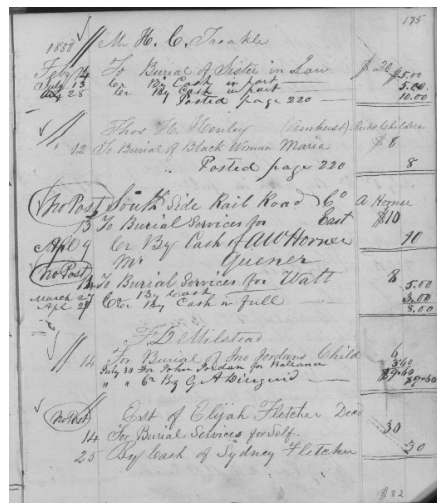 175
1858 Mr H. C. Treakle
Feby 14 To Burial of Sister in Law $20
July 13 Cr By Cash in part $5.00
Aug 28 Cr By Cash in part 5.00
Posted page 220 10.00
Thos H. Henley (Amherst)
12 To Burial of Black Woman Maria $8
Posted page 220 8
no Post South Side Rail Road Co A Horner
13 To Burial Services for East $10
Apl 9 Cr By Cash of AW Horner 10
no Post Mr Guener
14 To Burial Services for Watt 8
March 27 Cr By Cash 5.00
Apl Cr By Cash in full 3.00
8.00
F. D. Milstead
14 For Burial of Jno Jordans Child 6
July 30 For John Jordan for Ballance 3.60
" " Cr By G A Diuguid $9.60 $9.60
no Post Est of Elijah Fletcher Decd
14 For Burial Services for Self 30
25 By Cash of Sydney Fletcher 30
$82